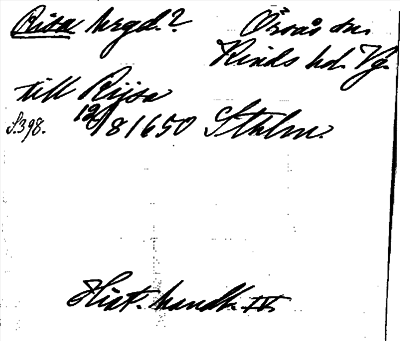 Risa hrgd.? Örsås sn.
Kinds hd. Vg.
till Rijsa
S.398. 12/8 1650 Sthlm.
Hist. handl. IV.